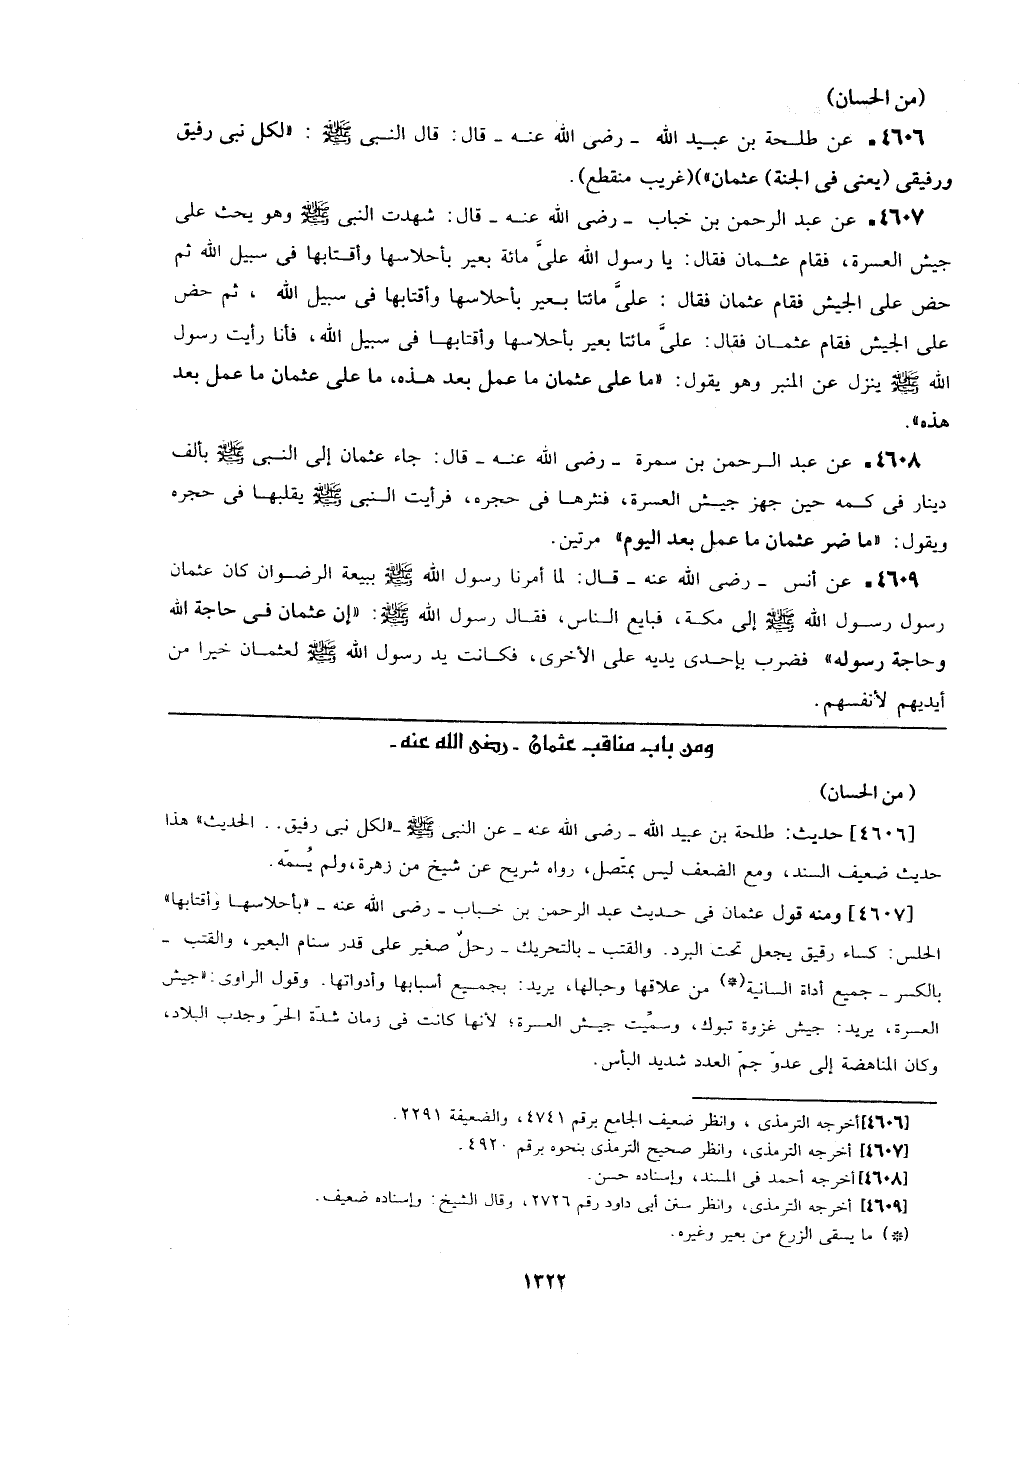 (من الحسان)
٤٦٠٦. عن طلـحة بن عبـيد الله ـ رضى الله عنـه ـ قال: قال النبى ﷺ : «لكل نبى رفيق
ورفيقى (يعنى فى الجنة) عثمان»)(غريب منقطع).
٤٦٠٧. عن عبد الرحمن بن خباب ـ رضى الله عنـه ـ قال: شهدت النبى ﷺ وهو يحث على
جيش العسرة، فقام عثـمان فقال: يا رسول الله علىَّ مائة بعير بأحلاسها وأقـتابها فى سبيل الله ثم
حض على الجيش فقام عثمان فقال : علىَّ مائتا بـعير بأحلاسها وأقتابها فى سبيل الله ، ثم حض
على الجيش فقام عثمـان فقال: علىَّ مائتا بعير بأحلاسها وأقتابهـا فى سبيل الله، فأنا رأيت رسول
الله ﷺ ينزل عن المنبر وهو يقول: «ما على عثمان ما عمل بعد هـذه، ما على عثمان ما عمل بعد
هذه».
٤٦٠٨. عن عبد الـرحمن بن سمرة ـ رضى الله عنـه ـ قال: جاء عثمان إلى النـبى ﷺ بألف
دينار فى كـمه حين جهز جيـش العسرة، فنثرهـا فى حجره، فرأيت الـنبى ﷺ يقلبهـا فى حجره
ويقول: «ما ضر عثمان ما عمل بعد اليوم» مرتين.
٤٦٠٩. عن أنس ـ رضى الله عنه ـ قـال: لما أمرنا رسول الله ﷺ ببيعة الرضـوان كان عثمان
رسول رسـول الله ﷺ إلى مكـة، فبايع الـناس، فقـال رسول الله ﷺ: «إن عثمان فـى حاجة الله
وحاجة رسوله» فضرب بإحـدى يديه على الأخرى، فكـانت يد رسول الله ﷺ لعثمـان خيرا من
أيديهم لأنفسهم.
ومن باب مناقب عثمان ـ رضى الله عنه ـ
( من الحسان)
[٤٦٠٦] حديث: طلحة بن عبيد الله ـ رضى الله عنه ـ عن النبى ﷺ ـ«لكل نبى رفيق.. الحديث» هذا
حديث ضعيف السند، ومع الضعف ليس بمتّصل، رواه شريح عن شيخ من زهرة،ولم يُسمّه.
[٤٦٠٧] ومنه قول عثمان فى حـديث عبد الرحمن بن خـباب ـ رضى الله عنه ـ «بأحلاسهـا وأقتابها»
الحلس: كساء رقيق يجعل تحت البرد. والقتب ـ بالتحريك ـ رحلٌ صغير على قدر سنام البعير، والقتب ـ
بالكسر ـ جميع أداة السانية(*) من علاقها وحبالها، يريد: بجمـيع أسبابها وأدواتها. وقول الراوى:«جيش
العـسرة، يريد: جيش غزوة تبوك، وسمِّيت جيـش العسرة؛ لأنها كانت فى زمان شدّة الحرّ وجدب البلاد،
وكان المناهضة إلى عدوّ جمّ العدد شديد البأس.
[٤٦٠٦]أخرجه الترمذى ، وانظر ضعيف الجامع برقم ٤٧٤١، والضعيفة ٢٢٩١.
[٤٦٠٧] أخرجه الترمذى، وانظر صحيح الترمذى بنحوه برقم ٤٩٢٠ .
[٤٦٠٨]أخرجه أحمد فى المسند، وإسناده حسن.
[٤٦٠٩] أخرجه الترمذى، وانظر سنن أبى داود رقم ٢٧٢٦، وقال الشيخ: وإسناده ضعيف.
(*) ما يسقى الزرع من بعير وغيره.
١٣٢٢